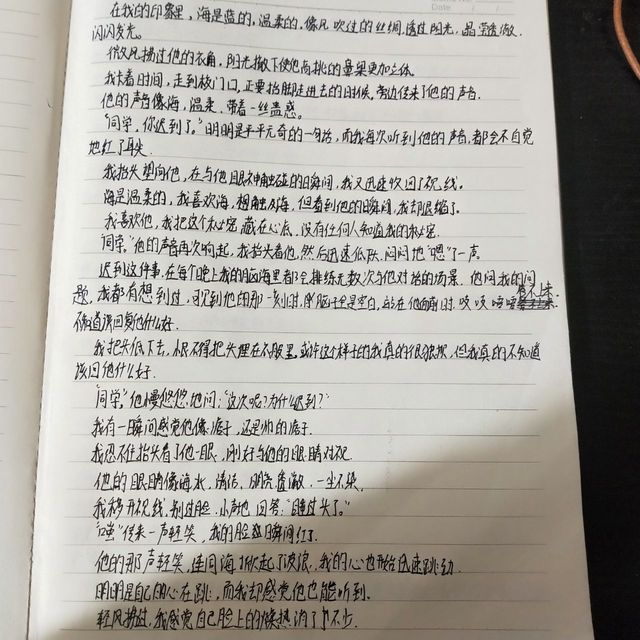 在我的印象里，海是蓝的，温柔的，像风吹过的丝绸，透过阳光，晶莹透澈，
闪闪发光。
微风拂过他的衣角，阳光撒下使他高挑的鼻梁更加立体。
我卡着时间，走到校门口，正要抬脚走进去的时候，旁边传来了他的声音。
他的声音像海，温柔，带着一丝蛊惑。
"同学，你迟到了。"明明是平平无奇的一句话，而我每次听到他的声音，都会不自觉
地红了耳尖
我抬头望向他，在与他眼神触碰的瞬间，我又迅速收回了视线。
海是温柔的，我喜欢海，想触及海，但看到他的瞬间，我却退缩了。
我喜欢他，我把这个秘密藏在心底，没有任何人知道我的秘密。
"同学。"他的声音再次响起，我抬头看他，然后迅速低头，闷闷地"嗯"了一声。
迟到这件事，在每个晚上我的脑海里都会排练无数次与他对话的场景，他问我的问
题，我都有想到过，可见到他的那一刻时，脑子里是空白，站在他面前时，吱吱唔唔
不知道该回复他什么好.
我把头低下去，恨不得把头埋在衣服里，或许这个样子的我真的很狼狈，但我真的不知道
该回他什么好.
"同学。"他慢悠悠地问："这次呢？为什么迟到？"
我有一瞬间感觉他像痞子，还是帅的痞子.
我忍不住抬头看了他一眼，刚好与他的眼睛对视
他的眼睛像海水，清洁，明亮透澈，一尘不染.
我移开视线，别过脸，小声地回答："睡过头了。"
"嗤"传来一声轻笑，我的脸颊瞬间红了.
他的那声轻笑，连同海掀起了波浪，我的心也开始迅速跳动.
明明是自己的心在跳，而我却感觉他也能听到.
轻风拂过，我感觉自己脸上的燥热消了不少.